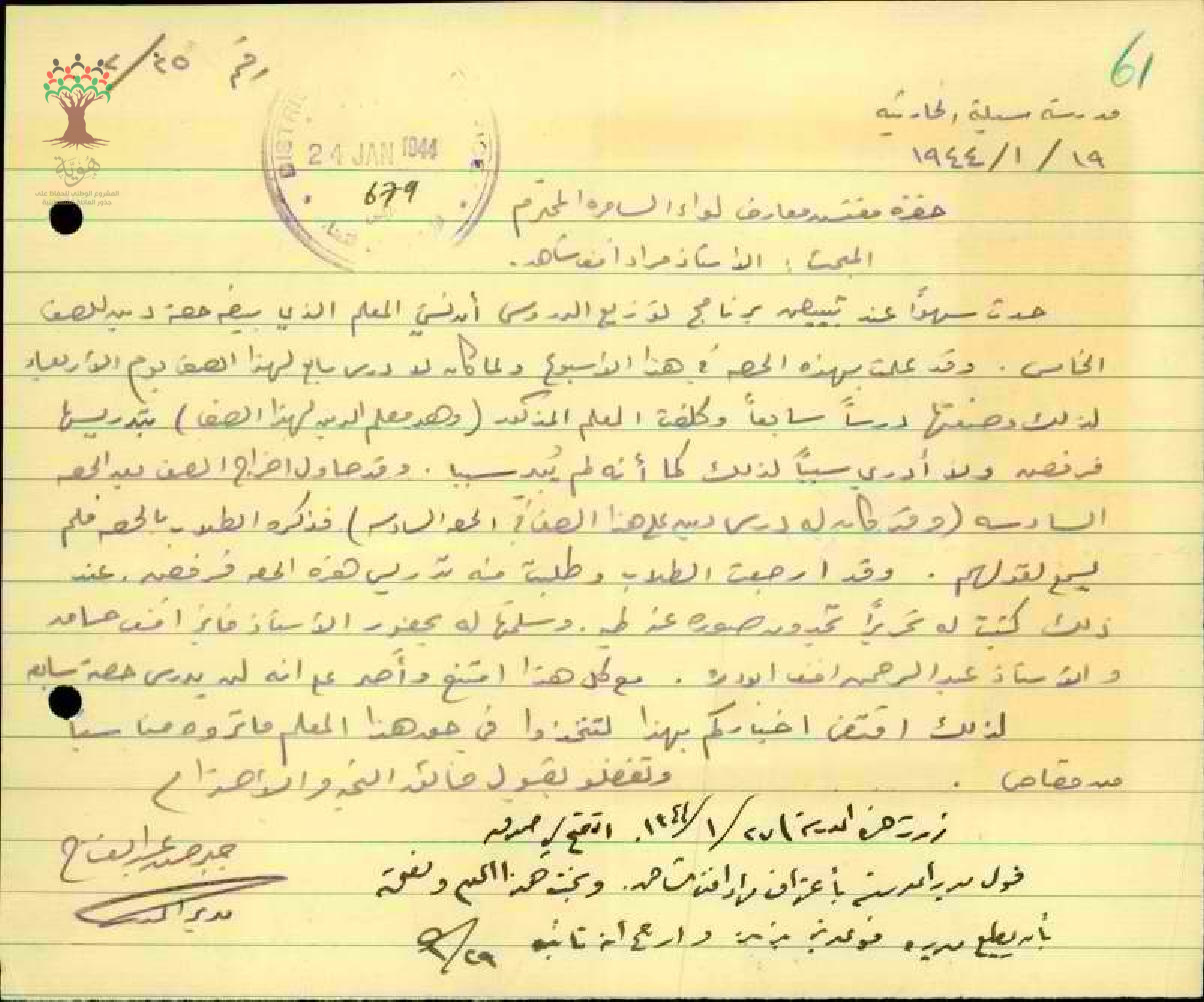 61
رقم ٢٥/
مدرسة سيلة الحارثية
١٩ / ١ / ١٩٤٤
24 JAN 1944
679
هوية
المشروع الوطني للحفاظ على
جذور العائلة الفلسطينية
حضرة مفتش معارف لواء السامره المحترم
المبحث : الاستاذ مراد افندي شاهد .
حدث سهواً عند تبييض برنامج توزيع الدروس أن نسي المعلم الذي بيضه حصة دين للصف
الخامس . وقد علمت بهذه الحصه في هذا الاسبوع ولما كان لا درس سابع لهذا الصف يوم الأربعاء
لذلك وضعتها درساً سابعاً وكلفت المعلم المذكور ( وهو معلم الدين لهذا الصف ) بتدريسها
فرفض ولا أدري سبباً لذلك كما أنه لم يُبد سببا . وقد حاول اخراج الصف بعد الحصه
السادسه ( وقد كان له درس دين على هذا الصف في الحصه السادسه ) فذكره الطلاب بالحصه فلم
يسمع لقولهم . وقد ارجعت الطلاب وطلبت منه تدريس هذه الحصه فرفض . عند
ذلك كتبت له تحريراً تجدون صوره عنه طيه . وسلمتها له بحضور الأستاذ فايز افندي حامد
والاستاذ عبد الرحمن افندي . مع كل هذا امتنع وأصر على انه لن يدرس حصة سابعه
لذلك اقتضى اخباركم بهذا لتتخذوا في حق هذا المعلم ما ترونه مناسباً
من قصاص .
وتفضلو بقبول فائق التحية والاحترام
عبد الفتاح
مدير المدرسة
زرت هذه المدرسة في ٢٧ / ١ / ١٩٤٤ . اتضح لي صدق
قول مدير المدرسة باعتراف مراد افندي شاهد . هذا المعلم ونصحته
بأن يطيع مديره فوعدني وارجو انه
٢٩/